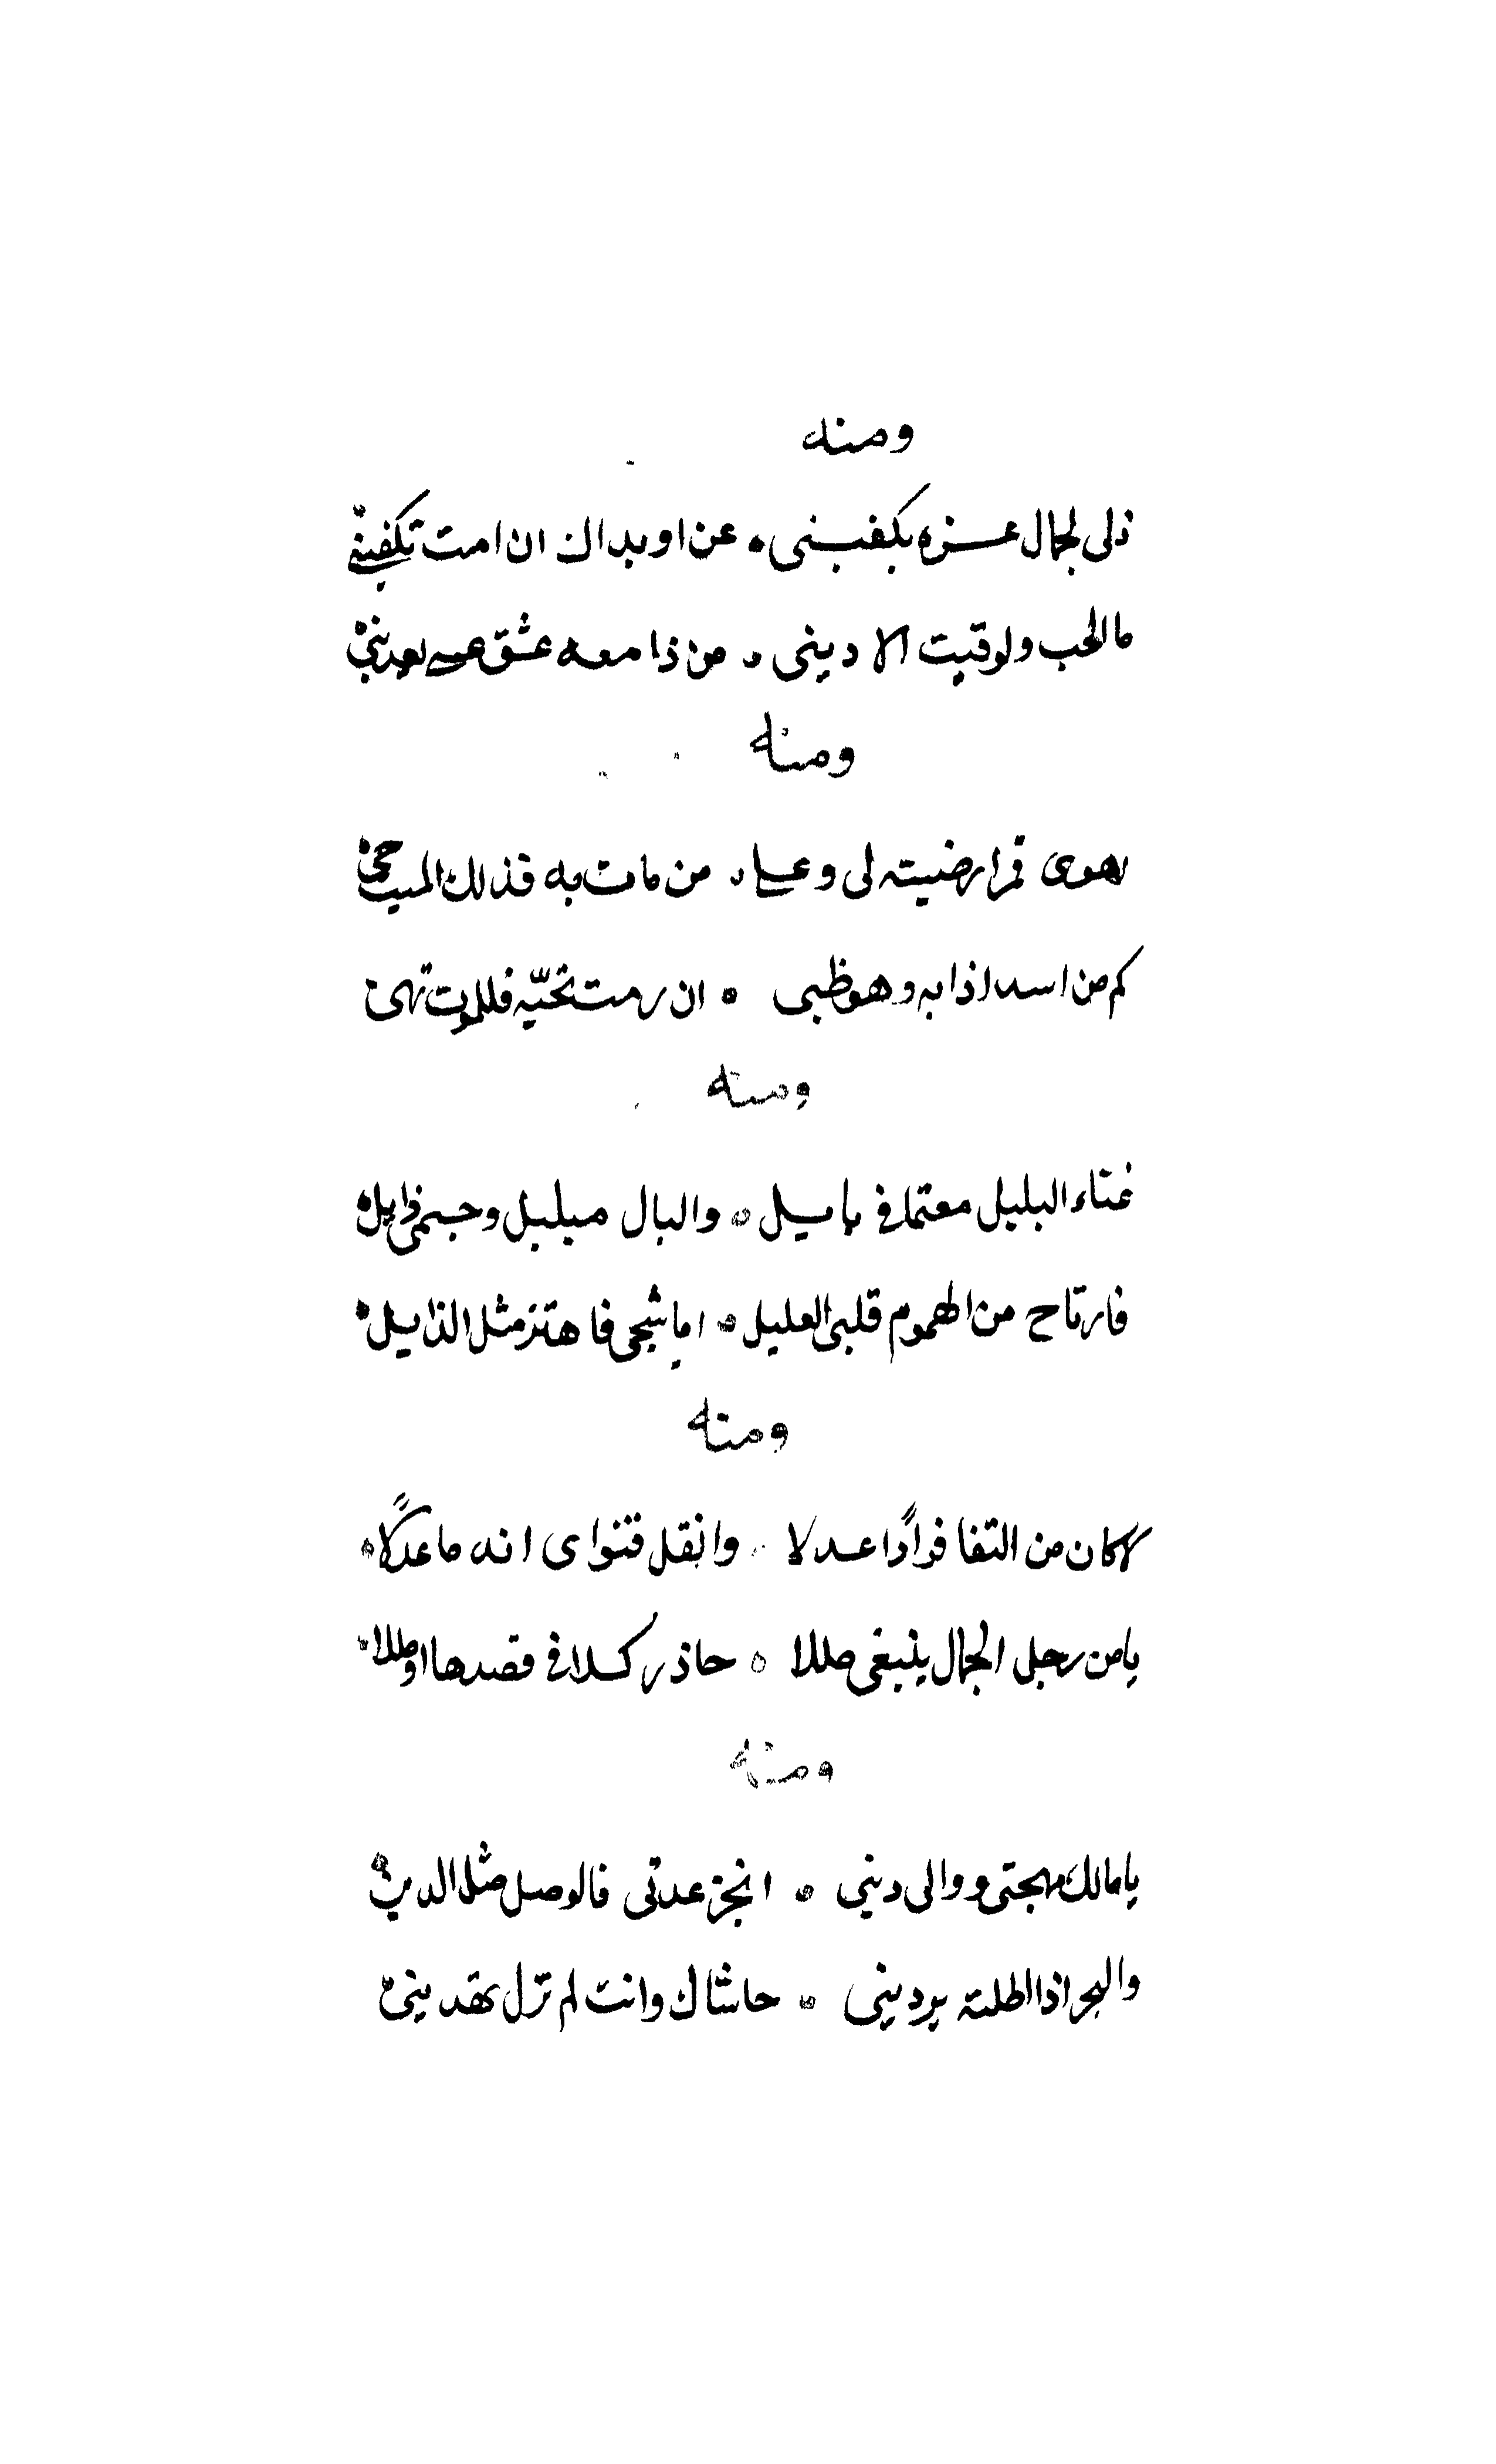 ومنه
ذلى لجمال عزه يكفينى • عن او بداك ان امت تكفينى
ما الحب ولو قيت الا دينى • من ذا معه عشق
ومنه
يهوى قمرا رضيته لى و • من مات به فذلك الميت
كم من اسد اذابه وهو ظبى • ان رمت تحيّه فللموت تهى
ومنه
غناء البلبل معتما فى بابيل • والبال مبلبل وجسمى ذابل
فارتاح من الهموم قلبى العليل • اما شجى فاهتز مثل الذابيل
ومنه
كان من التقا فوادًا عدلا وانقل فتواى انه ما عدلا
يامن رجل الجمال ينبغى طللا • حاذر كسلا فى قصدها اوطللا
ومنه
يا مالك مهجتى ووالى دينى • انجز عدتى فالوصل مثل الدين
والهجر اذا اطلته يردينى • حاشاك وانت لم تزل تهدينى